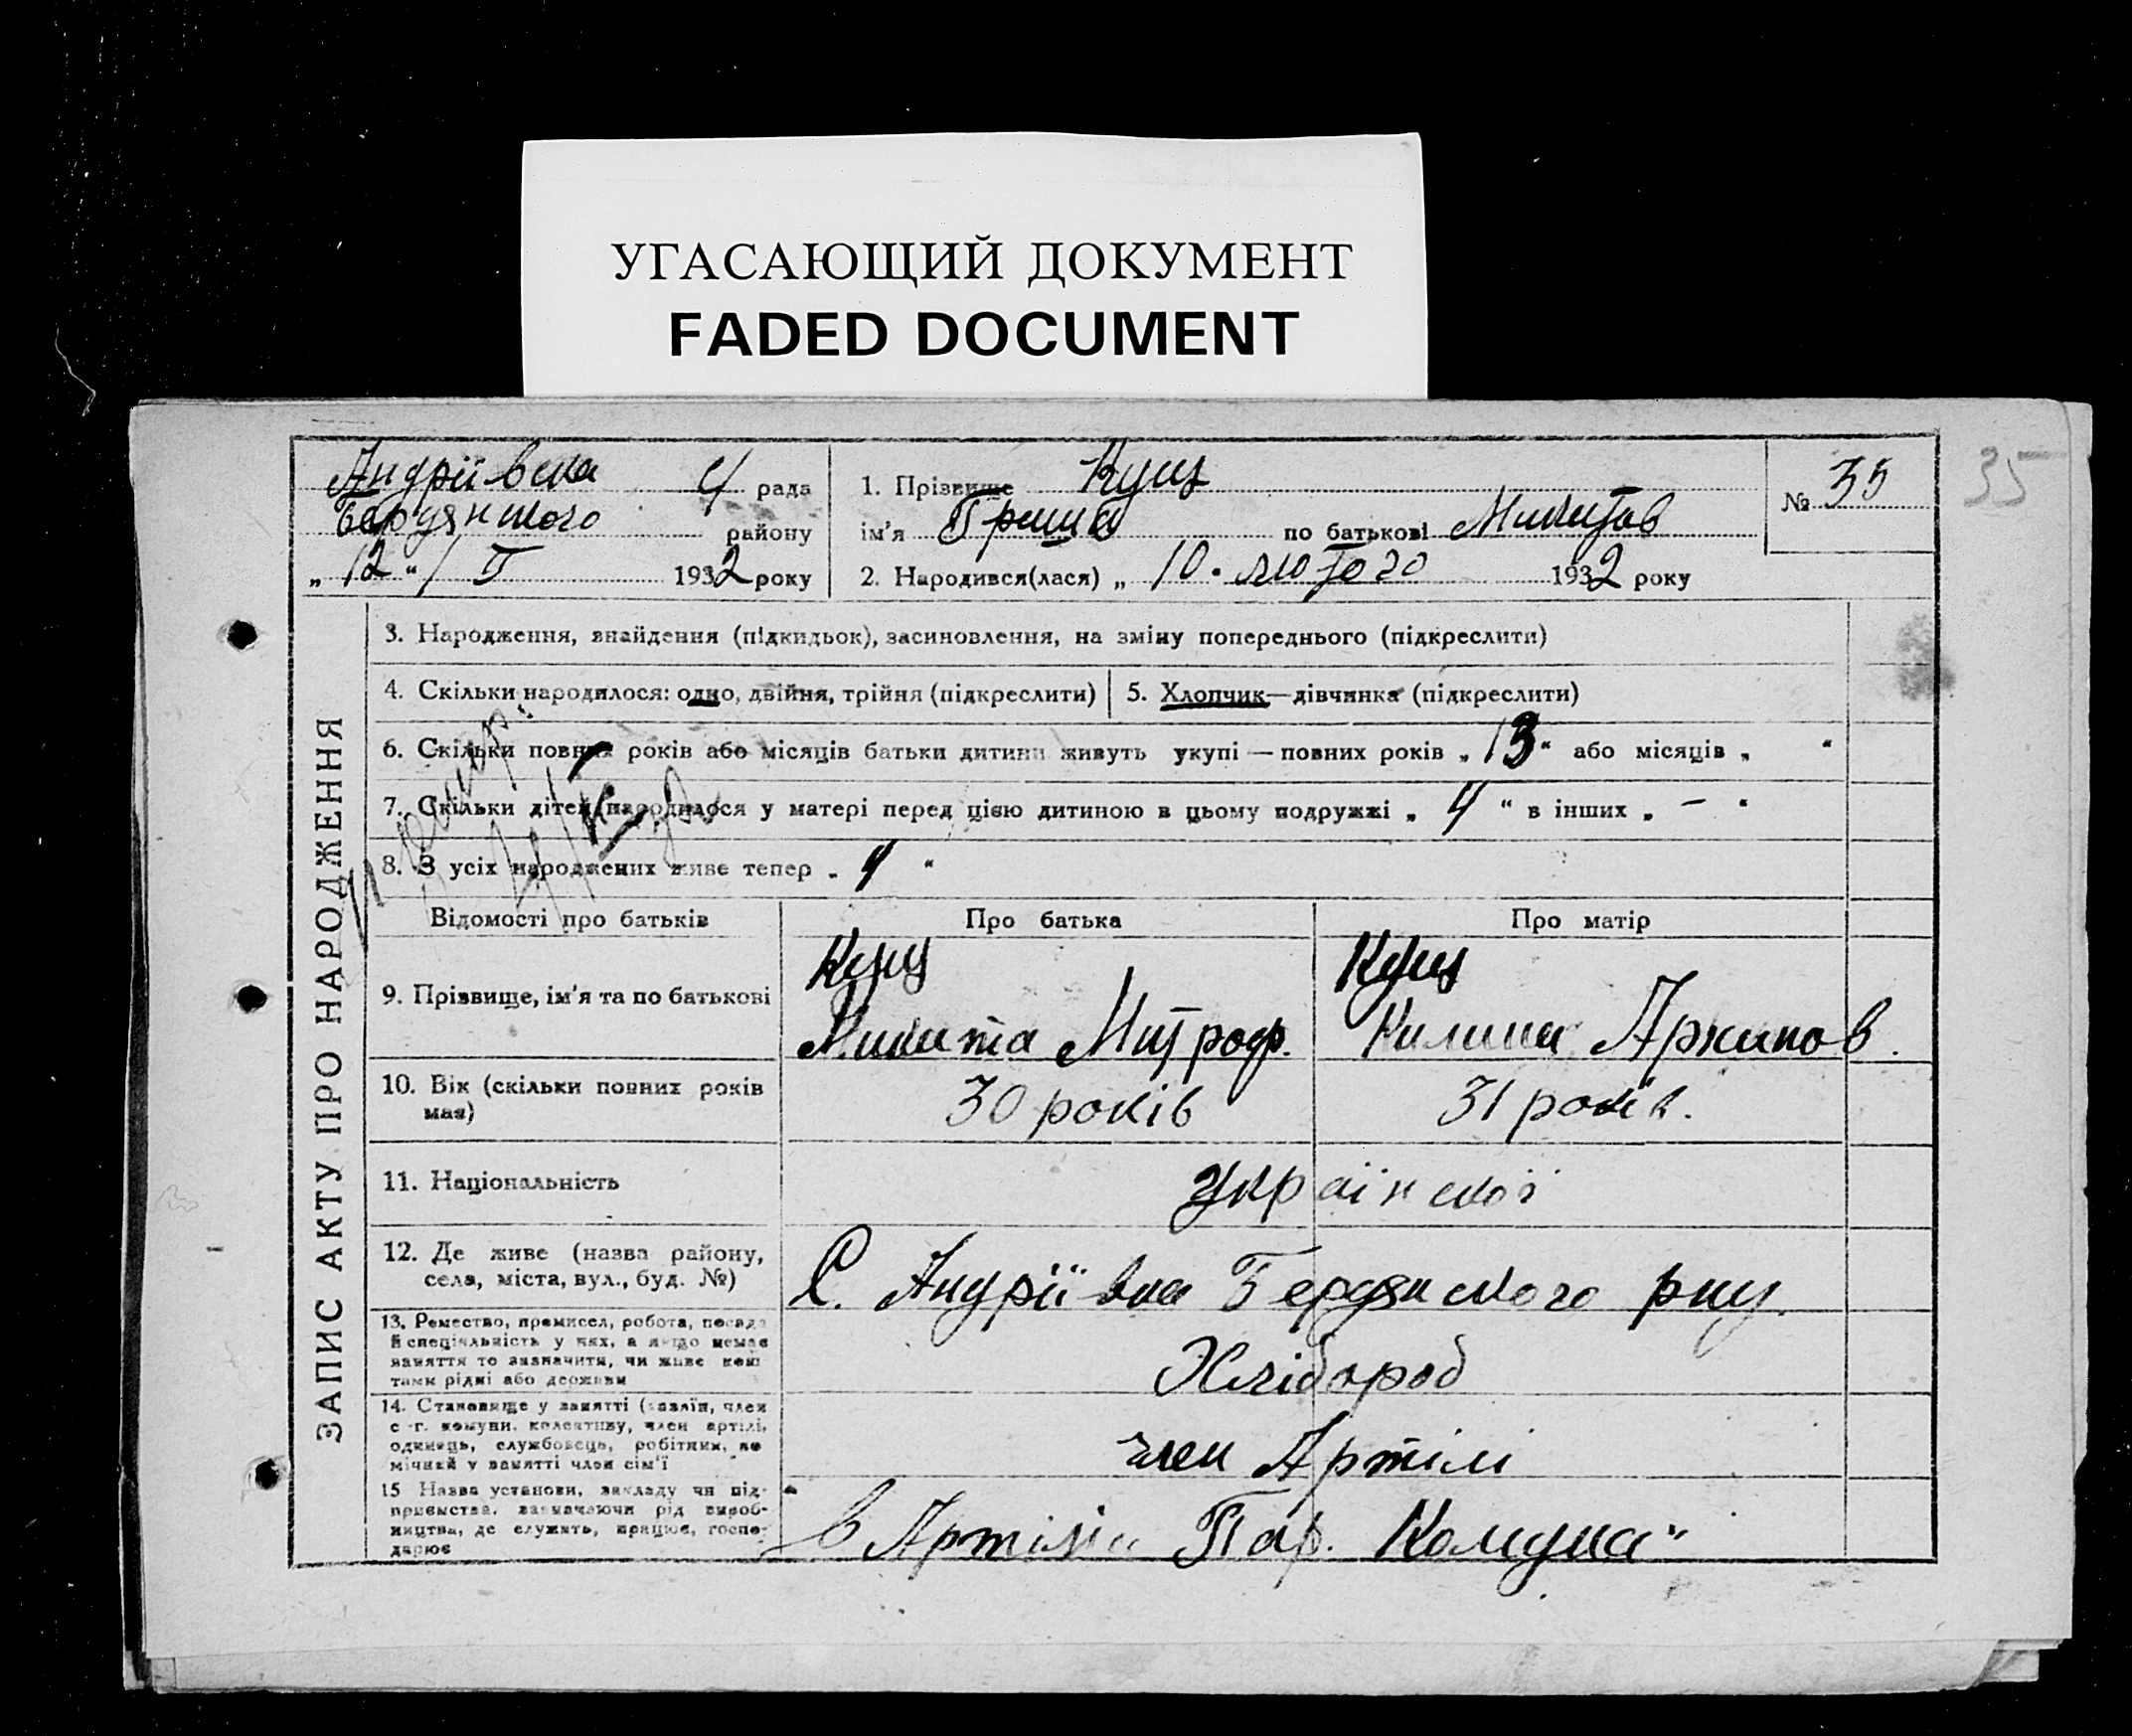 УГАСАЮЩИЙ ДОКУМЕНТ
FADED DOCUMENT
35
Андріївська рада
Бердянського району
„ 12 “ / II 1932 року
1. Прізвище Кущ
ім'я Гриша по батькові Микитов
№ 35
2. Народився(лася) „ 10 . лютого 1932 року
ЗАПИС АКТУ ПРО НАРОДЖЕННЯ
3. Народження, знайдення (підкидьок), засиновлення, на зміну попереднього (підкреслити)
4. Скільки народилося: одно, двійня, трійня (підкреслити)
5. Хлопчик—дівчинка (підкреслити)
6. Скільки повних років або місяців батьки дитини живуть укупі — повних років „ 13 “ або місяців „ “
7. Скільки дітей народилося у матері перед цією дитиною в цьому подружжі „ 4 “ в інших „ — “
8. З усіх народжених живе тепер „ 4 “
Відомості про батьків
Про батька
Про матір
9. Прізвище, ім'я та по батькові
Кущ
Микита Митроф.
Кущ
Килина Архипов.
10. Вік (скільки повних років
має)
30 років
31 років.
11. Національність
української
12. Де живе (назва району,
села, міста, вул., буд. №)
С. Андріївка Бердянского рну.
13. Ремество, промисел, робота, посада
й спеціяльність у них, а якщо немає
заняття то зазначити, чи живе кош
тами рідні або держави
Хлібороб
14. Становище у занятті (хазяїн, член
с.-г. комуни, колективу, член артілі,
одинець, службовець, робітник, по
мічний у занятті член сім'ї
член Артілі
15 Назва установи, закладу чи під-
приємства, зазначаючи рід вироб-
ництва, де служить, працює, госпо-
дарює
в Артілі Пар. Комуна“